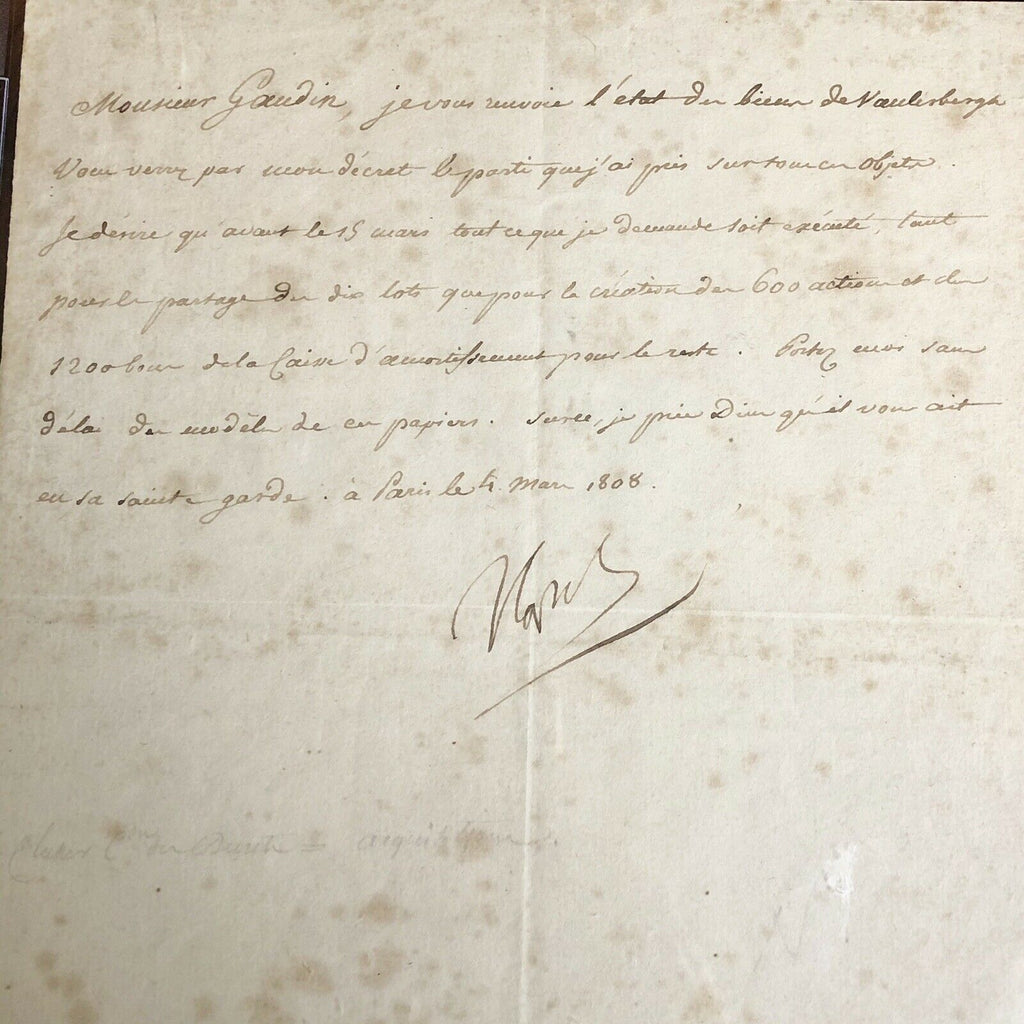 Monsieur Gaudin, je vous renvoie l'état des biens de Vanlerberghe
Vous verrez par mon décret le parti que j'ai pris sur tous ces objets.
Je désire qu'avant le 15 mars tout ce que je demande soit exécuté, tant
pour le partage des dix lots que pour la création des 600 actions et des
1200 bons de la Caisse d'amortissement pour le reste. Portez moi sans
délai des modèles de ces papiers. Sur ce, je prie Dieu qu'il vous ait
en sa sainte garde. à Paris le 4 Mars 1808.
Napol